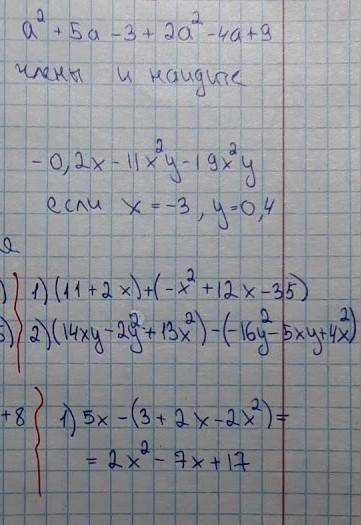 a² + 5a - 3 + 2a² - 4a + 9
члены и найдите
- 0,2x - 11x²y - 19x²y
если x = -3, y = 0,4
я
) 1) (11 + 2x) + (-x² + 12x - 35)
5) 2) (14xy - 2y² + 13x²) - (-16y² - 5xy + 4x²)
+8 1) 5x - (3 + 2x - 2x²) =
= 2x² - 7x + 17